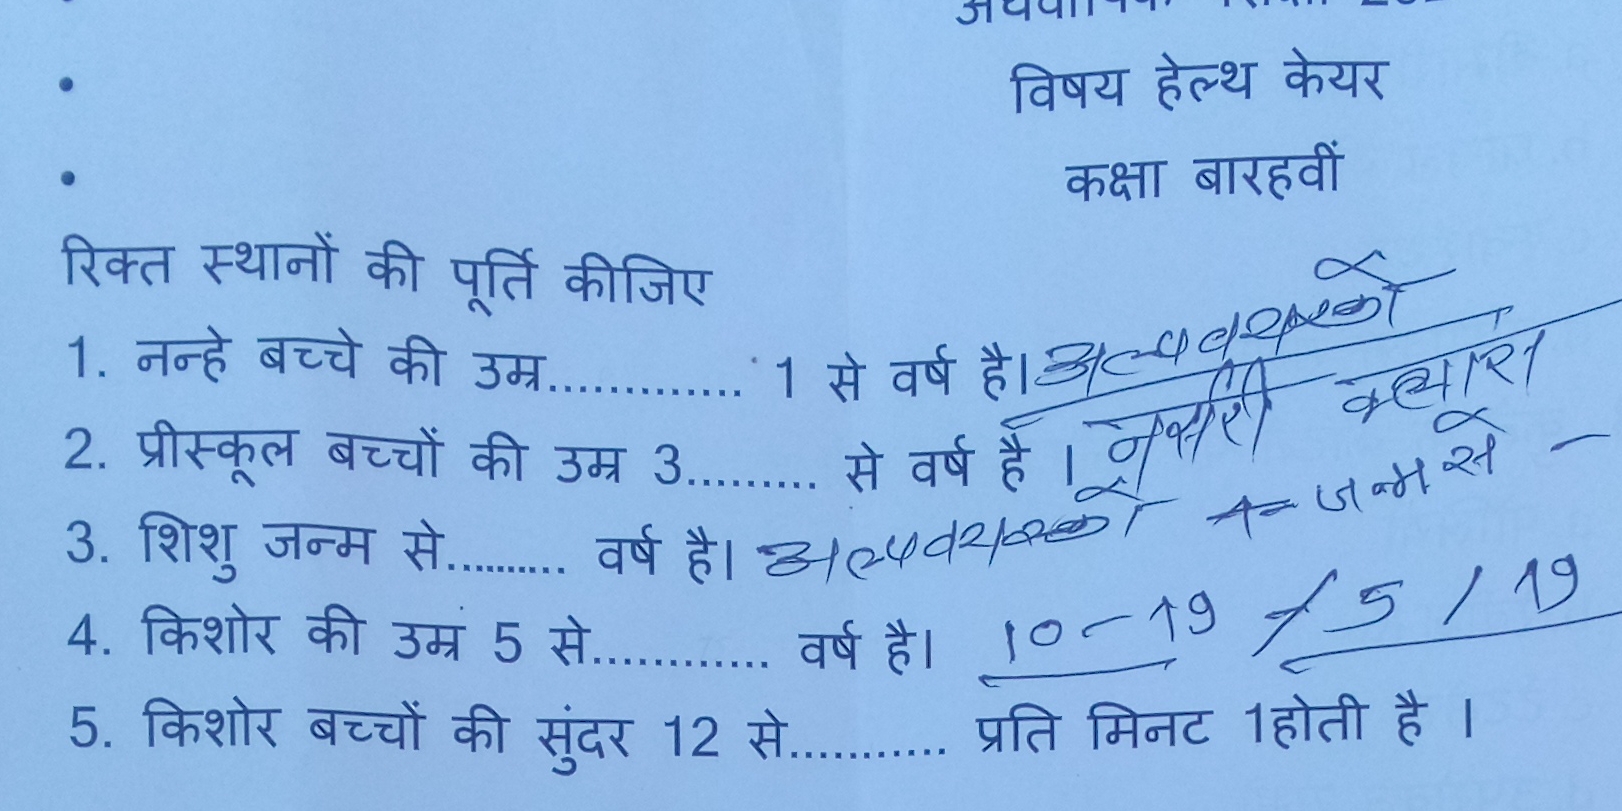 विषय हेल्थ केयर
कक्षा बारहवीं
रिक्त स्थानों की पूर्ति कीजिए
1. नन्हे बच्चे की उम्र............. 1 से वर्ष है।
2. प्रीस्कूल बच्चों की उम्र 3......... से वर्ष है । नर्सरी
3. शिशु जन्म से.......... वर्ष है। जन्म से -
4. किशोर की उम्र 5 से............ वर्ष है। 10-19 / 5 / 19
5. किशोर बच्चों की सुंदर 12 से........... प्रति मिनट 1होती है ।